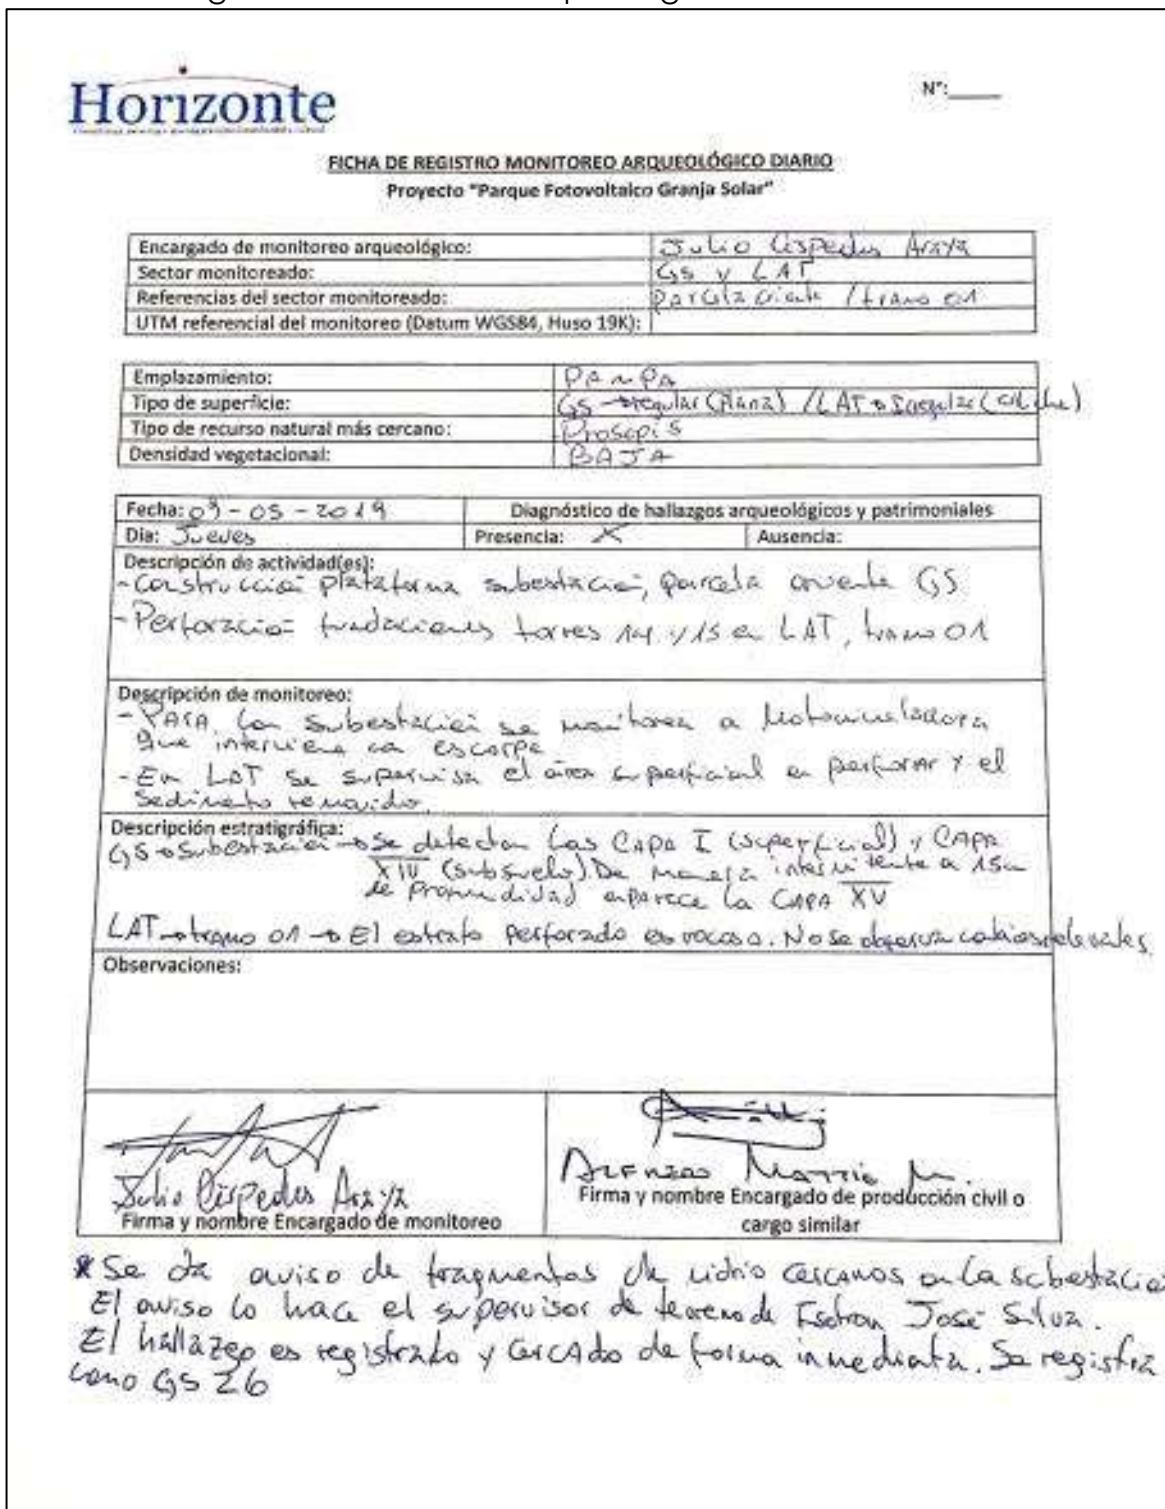 Horizonte
N°:____
FICHA DE REGISTRO MONITOREO ARQUEOLÓGICO DIARIO
Proyecto "Parque Fotovoltaico Granja Solar"
Encargado de monitoreo arqueológico: Julio Céspedes Araya
Sector monitoreado: GS y LAT
Referencias del sector monitoreado: Parcela oriente / tramo 01
UTM referencial del monitoreo (Datum WGS84, Huso 19K):
Emplazamiento: PAMPA
Tipo de superficie: GS → regular (Plana) / LAT → Irregular (caliche)
Tipo de recurso natural más cercano: Prosopis
Densidad vegetacional: BAJA
Fecha: 09-05-2019 Diagnóstico de hallazgos arqueológicos y patrimoniales
Día: Jueves Presencia: X Ausencia:
Descripción de actividad(es):
- Construcción plataforma subestación, parcela oriente GS
- Perforación fundaciones torres 14 y 15 en LAT, tramo 01
Descripción de monitoreo:
- PARA la subestación se monitorea a Motoniveladora
que interviene en escarpe
- En LAT se supervisa el área superficial a perforar y el
sedimento removido.
Descripción estratigráfica:
GS → Subestación → Se detectan las CAPA I (superficial) y CAPA
XIV (subsuelo). De manera intermitente a 15cm
de Profundidad aparece la CAPA XV
LAT → tramo 01 → El estrato perforado es rocoso. No se observan cambios relevantes.
Observaciones:
Julio Céspedes Araya
Firma y nombre Encargado de monitoreo
M.
Firma y nombre Encargado de producción civil o
cargo similar
* Se da aviso de fragmentos de vidrio cercanos a la subestación
El aviso lo hace el supervisor de terreno de José Silva.
El hallazgo es registrado y cercado de forma inmediata. Se registra
como GS 26